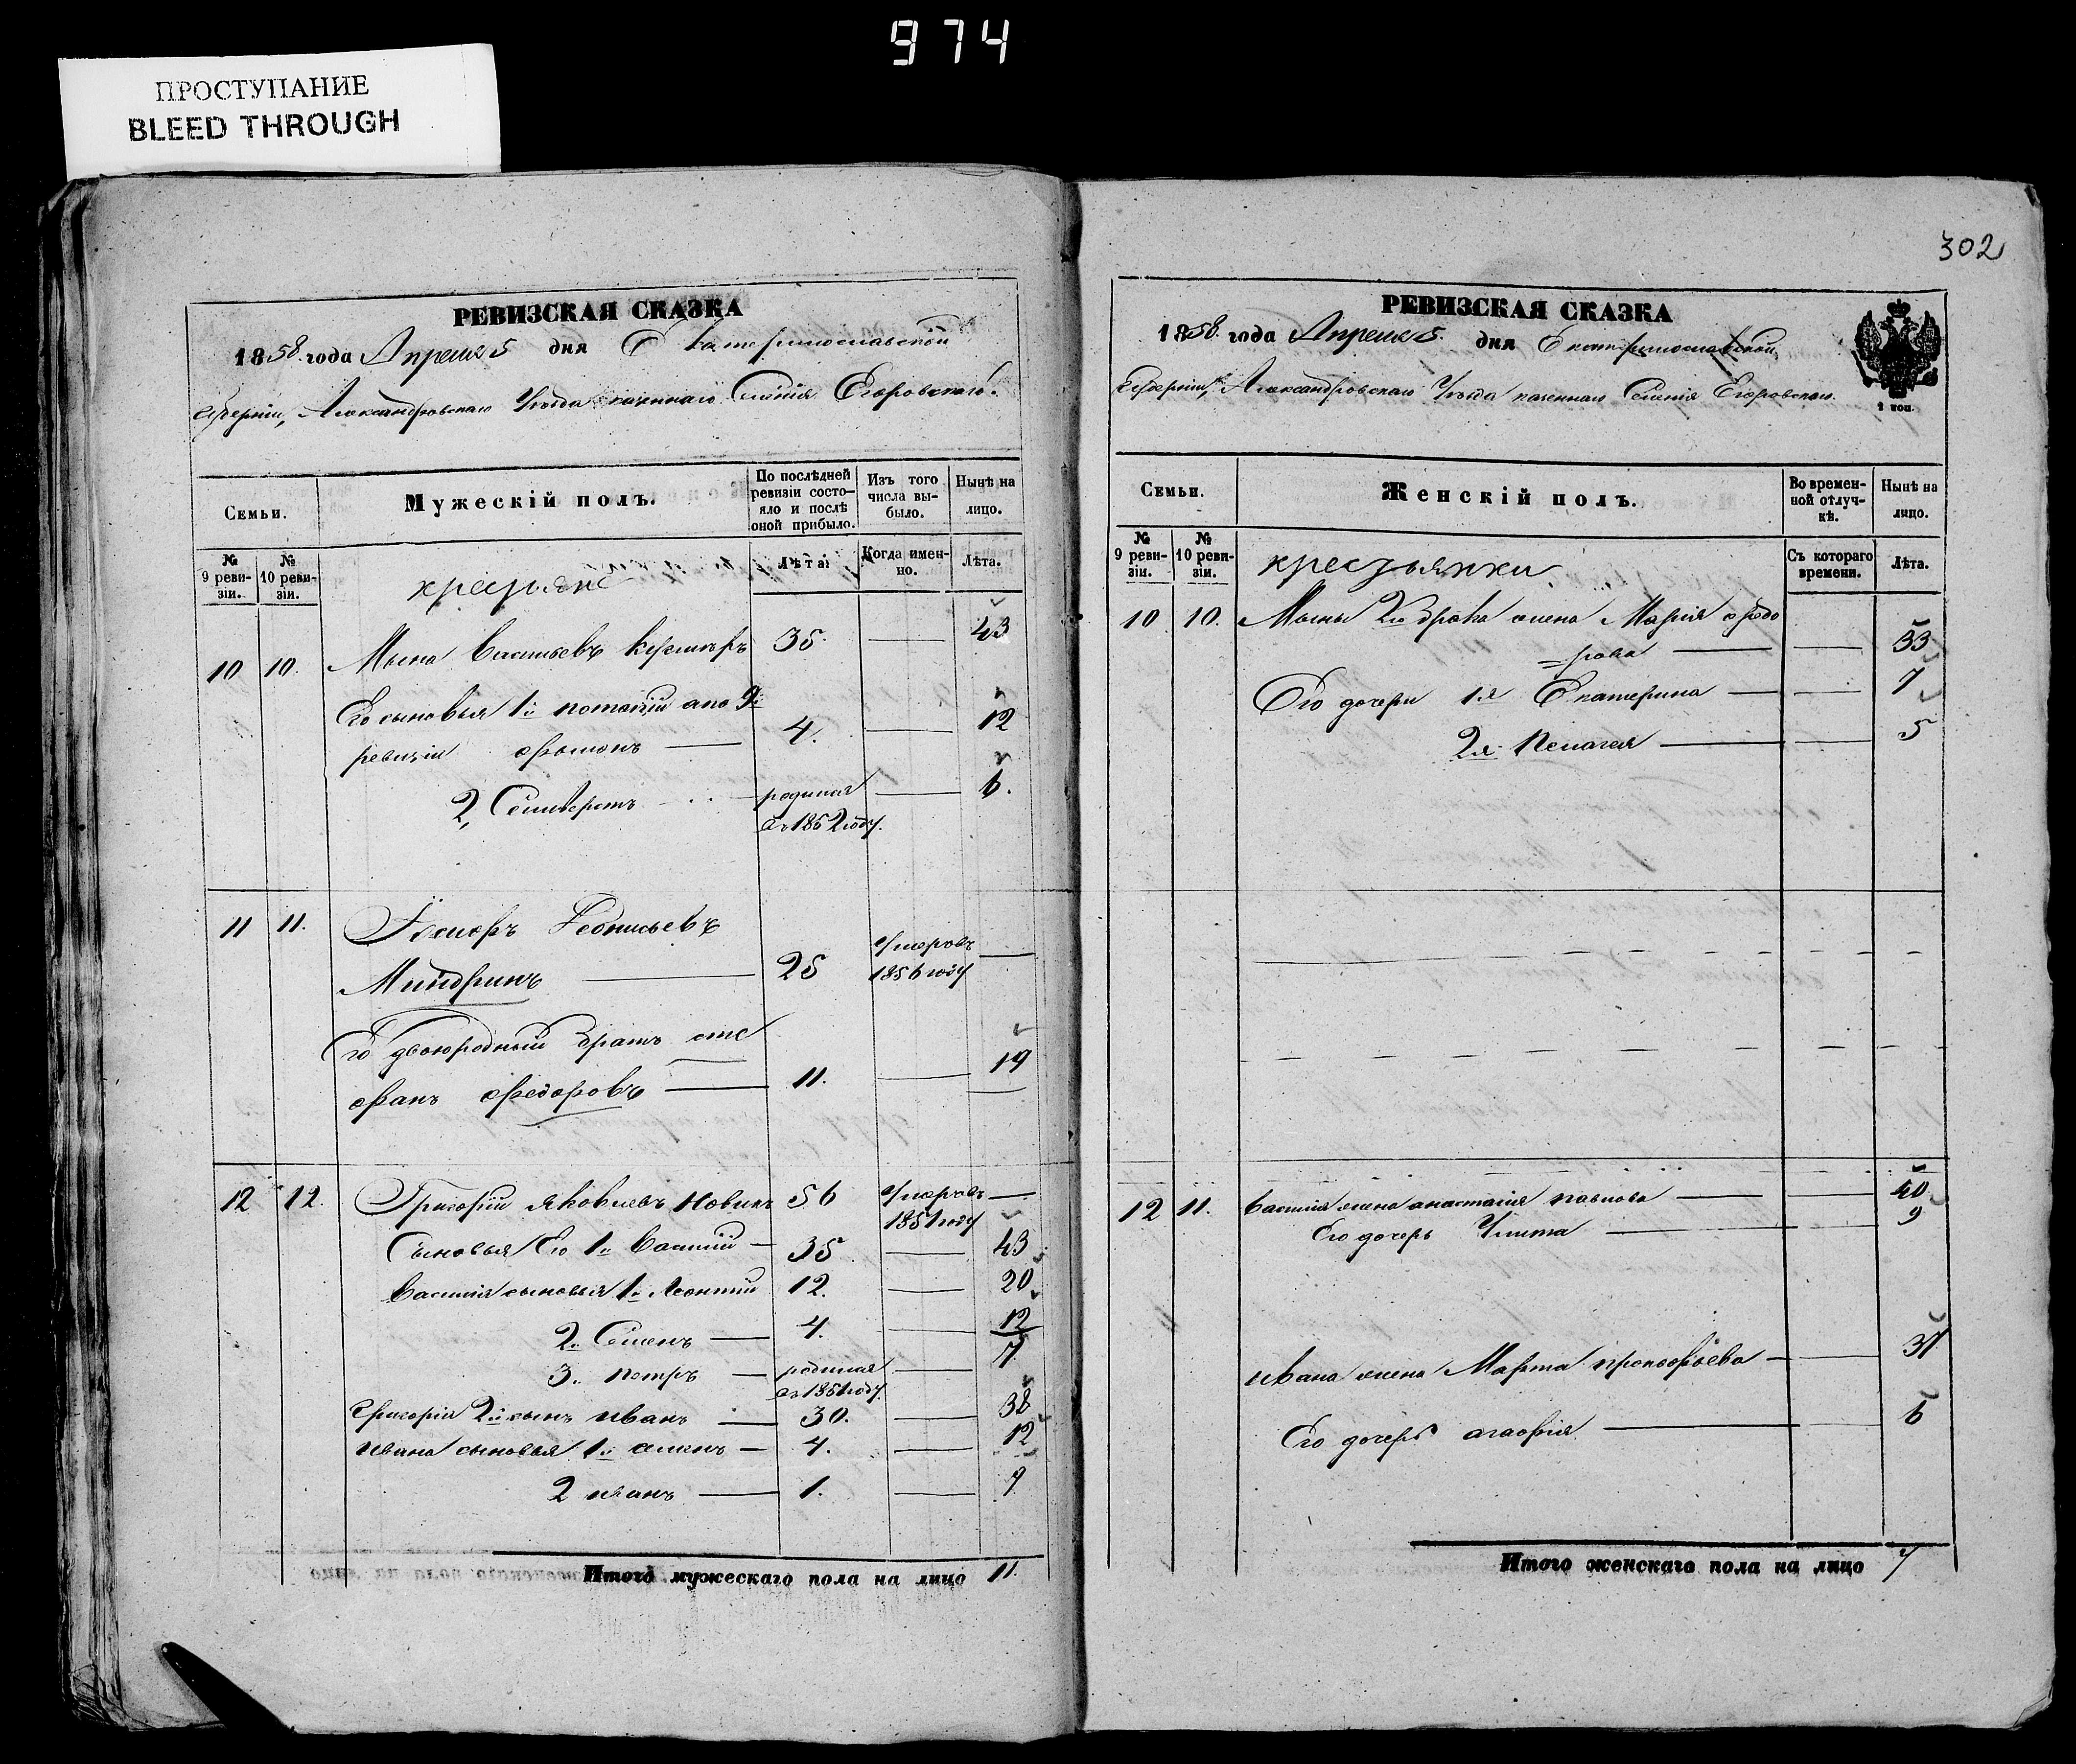 974
ПРОСТУПАНИЕ
BLEED THROUGH
РЕВИЗСКАЯ СКАЗКА
1858 года Апреля 5 дня Екатеринославской
Губерніи, Александровскаго Уезда казеннаго Селенія Егоровскаго.
Семьи.
Мужескій полъ.
По послѣдней ревизіи состо-
яло и послѣ оной прибыло.
Изъ того числа вы-
было.
Нынѣ на лицо.
№ 9 реви-
зіи.
№ 10 реви-
зіи.
крестьяне
Лѣта.
Когда имен-
но.
Лѣта.
10 10. Мына Васильевъ 35. 43
Его сыновья 1й потапій а по 9й
ревизіи 4. 12
2, родился 6.
въ 1852 году.
11 11.
25 Умеръ въ
1856 году
Его двоюродный братъ сте
фанъ федоровъ 11. 19
12 12. Григорій Яковлевъ Новикъ 56 Умеръ въ
1851 году
Сыновья Его 1й Василій 35 43
Василія сыновья 1й Леонтій 12. 20
2й Семенъ 4. 12
3й петръ родился 7.
въ 1851 году.
Григорія 2й сынъ иванъ 30. 38
ивана сыновья 1й 4. 12
2 иванъ 1. 9
Итого мужескаго пола на лицо 11.
302
РЕВИЗСКАЯ СКАЗКА
1858 года Апреля 5. дня Екатеринославской
Губерніи, Александровскаго Уезда казеннаго Селенія Егоровскаго.
1 коп.
Семьи.
Женскій полъ.
Во времен-
ной отлуч-
кѣ.
Нынѣ на лицо.
№ 9 реви-
зіи.
№ 10 реви-
зіи.
крестьянки
Съ котораго времени.
Лѣта.
10 10. Мыны 2го брака жена Марія федо
=рова 33
Его дочери 1я Екатерина 7
2я Пелагея 5
12 11. Василія жена анастасія павлова 40
Его дочерь Улита 9
ивана жена Марфа прокофьева 31
Его дочерь агафія 6
Итого женскаго пола на лицо 7